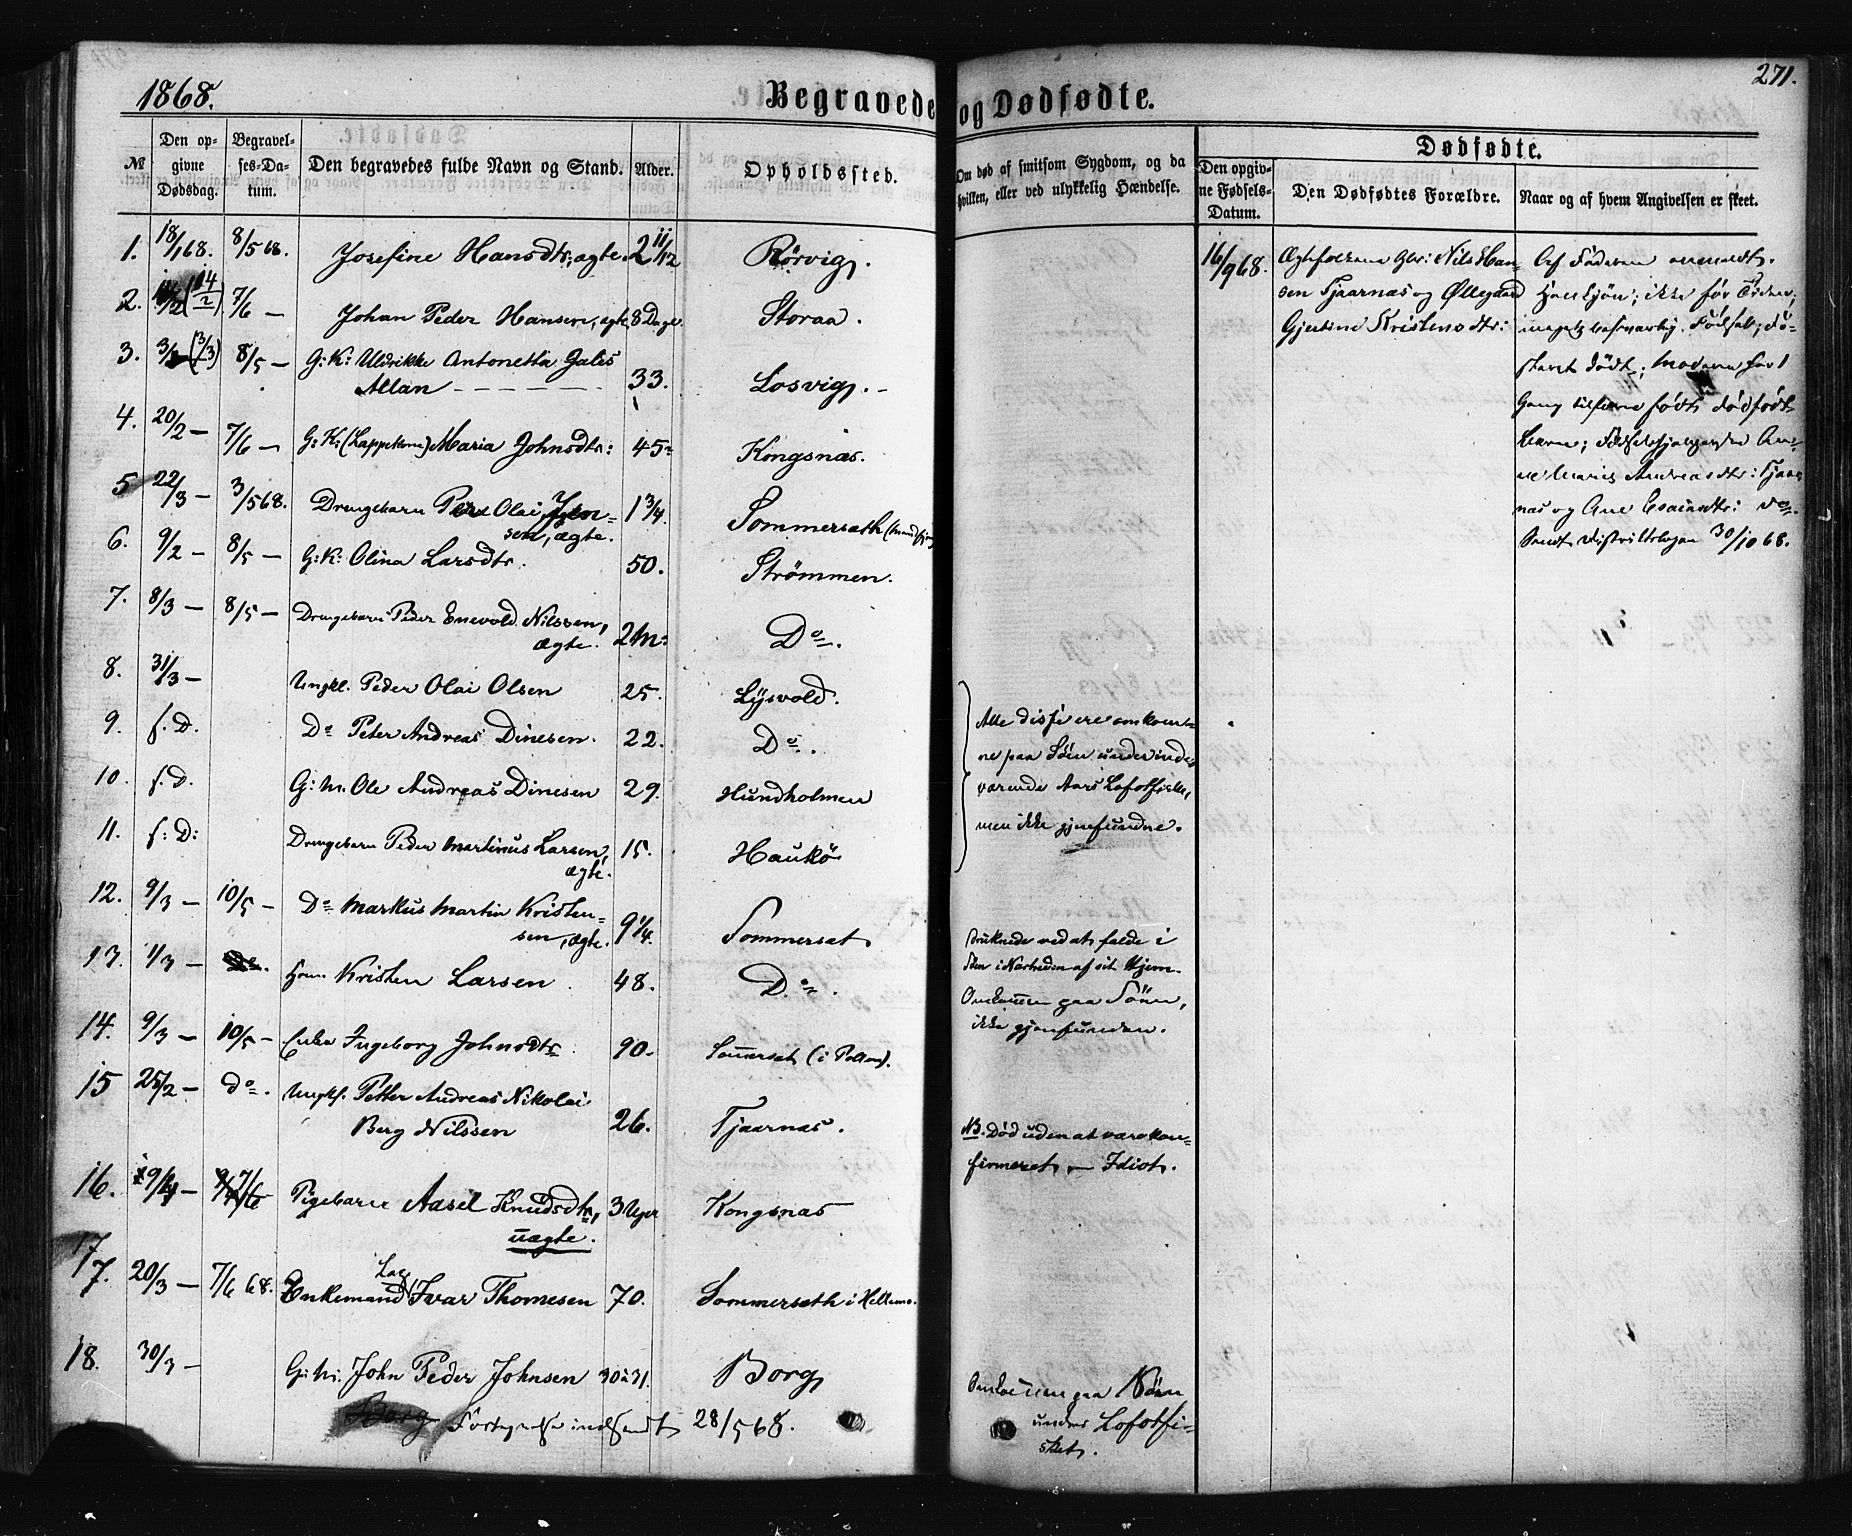 1868.
Begravede og Dødfødte.
271.
№
Den opgivne Dødsdag.
Begravelses-Datum.
Den begravedes fulde Navn og Stand.
Alder.
Opholdssted.
Om død af smitsom Sygdom, og da hvilken, eller ved ulykkelig Hændelse.
Dødfødte.
Den opgivne Fødsels-Datum.
Den Dødfødtes Forældre.
Naar og af hvem Angivelsen er skeet.
1. 18/1 68. 8/5 68. Josefine Hansdtr, ægte. 2 11/12 Rörvig.
2. (14/2) 7/6 — Johan Peder Hansen, ægte 8 Dage. Storaa.
3. (3/3) 8/5 — G: K: Uldrikke Antonetta Jales
Allan - - - - - 33. Losvig. -
4. 20/2 — 7/6 — G: K: (Lappekone) Maria Johnsdtr: 45 Kongsnæs.
5 22/3 — 3/5 68. Drengebarn Peder Olai Jen=
sen, ægte. 1 3/4. Sommersæth
6. 9/2 — 8/5 — G: K: Olina Larsdtr. 50. Strømmen.
7. 8/3 — 8/5 — Drengebarn Peder Enevold Nilssen,
ægte. 2 M: Do.
8. 31/3 — Ungkl. Peder Olai Olsen 25. Lÿsvold.
9. f. D. Do Peter Andreas Dinesen. 22. Do.
10. f. D. G: M. Ole Andreas Dinesen 29. Hundholmen
11. f: D: Drengebarn Peder Martinus Larsen,
ægte. 15. Haukö
12. 9/3 — 10/5 — Do Markus Martin Kristen=
sen, ægte. 9 1/4. Sommerset
13. 1/3 — Do. Kristen Larsen 48. Do.
14. 9/3 — 10/5 — Enke Ingeborg Johnsdtr 90. Somerset (i Pollen).
15 25/2 — do. Ungk. Petter Andreas Nikolai
Berg Nilssen 26. Tjaarnæs.
16. 9/4 — 7/6 Pigebarn Aasel Knudsdtr,
uægte. 3 Uger Kongsnæs
17
17. 20/3 — 7/6 68. Enkemand Lap Ivar Thomesen 70. Sommersæth i Hellemo.
18. 30/3 — G: M. John Peder Johnsen 30 à 31. Borg
Borg Fortegnelse indsendt 28/5 68.
Alle disse ere omkom=
ne paa Söen under inde=
værende Aars Lofotfiske,
men ikke gjenfundne.
Druknede ved at falde i
Söen i Nærheden af sit Hjem.
Omkommen paa Söen,
ikke gjenfunden.
NB. Död uden at være kon=
firmeret, — Idiot.
Omkommen paa Söen
under Lofotfi=
sket.
16/9 68. Ægtefolkene Gbr: Nils Han=
sen Tjaarnæs og Øllegaard
Gjertine Kristensdtr:
Af Faderen anmeldt.
Hankjön; ikke för Tiden;
Fødsel; Fo=
steret dödt; Moderen har 1
Gang tilforn födt dödfödt
Barn; Födselshjælpersker An=
ne Marie Andreasdtr: Tjaar
næs og Ane Esaiasdtr: do.
Sendt 30/10 68.